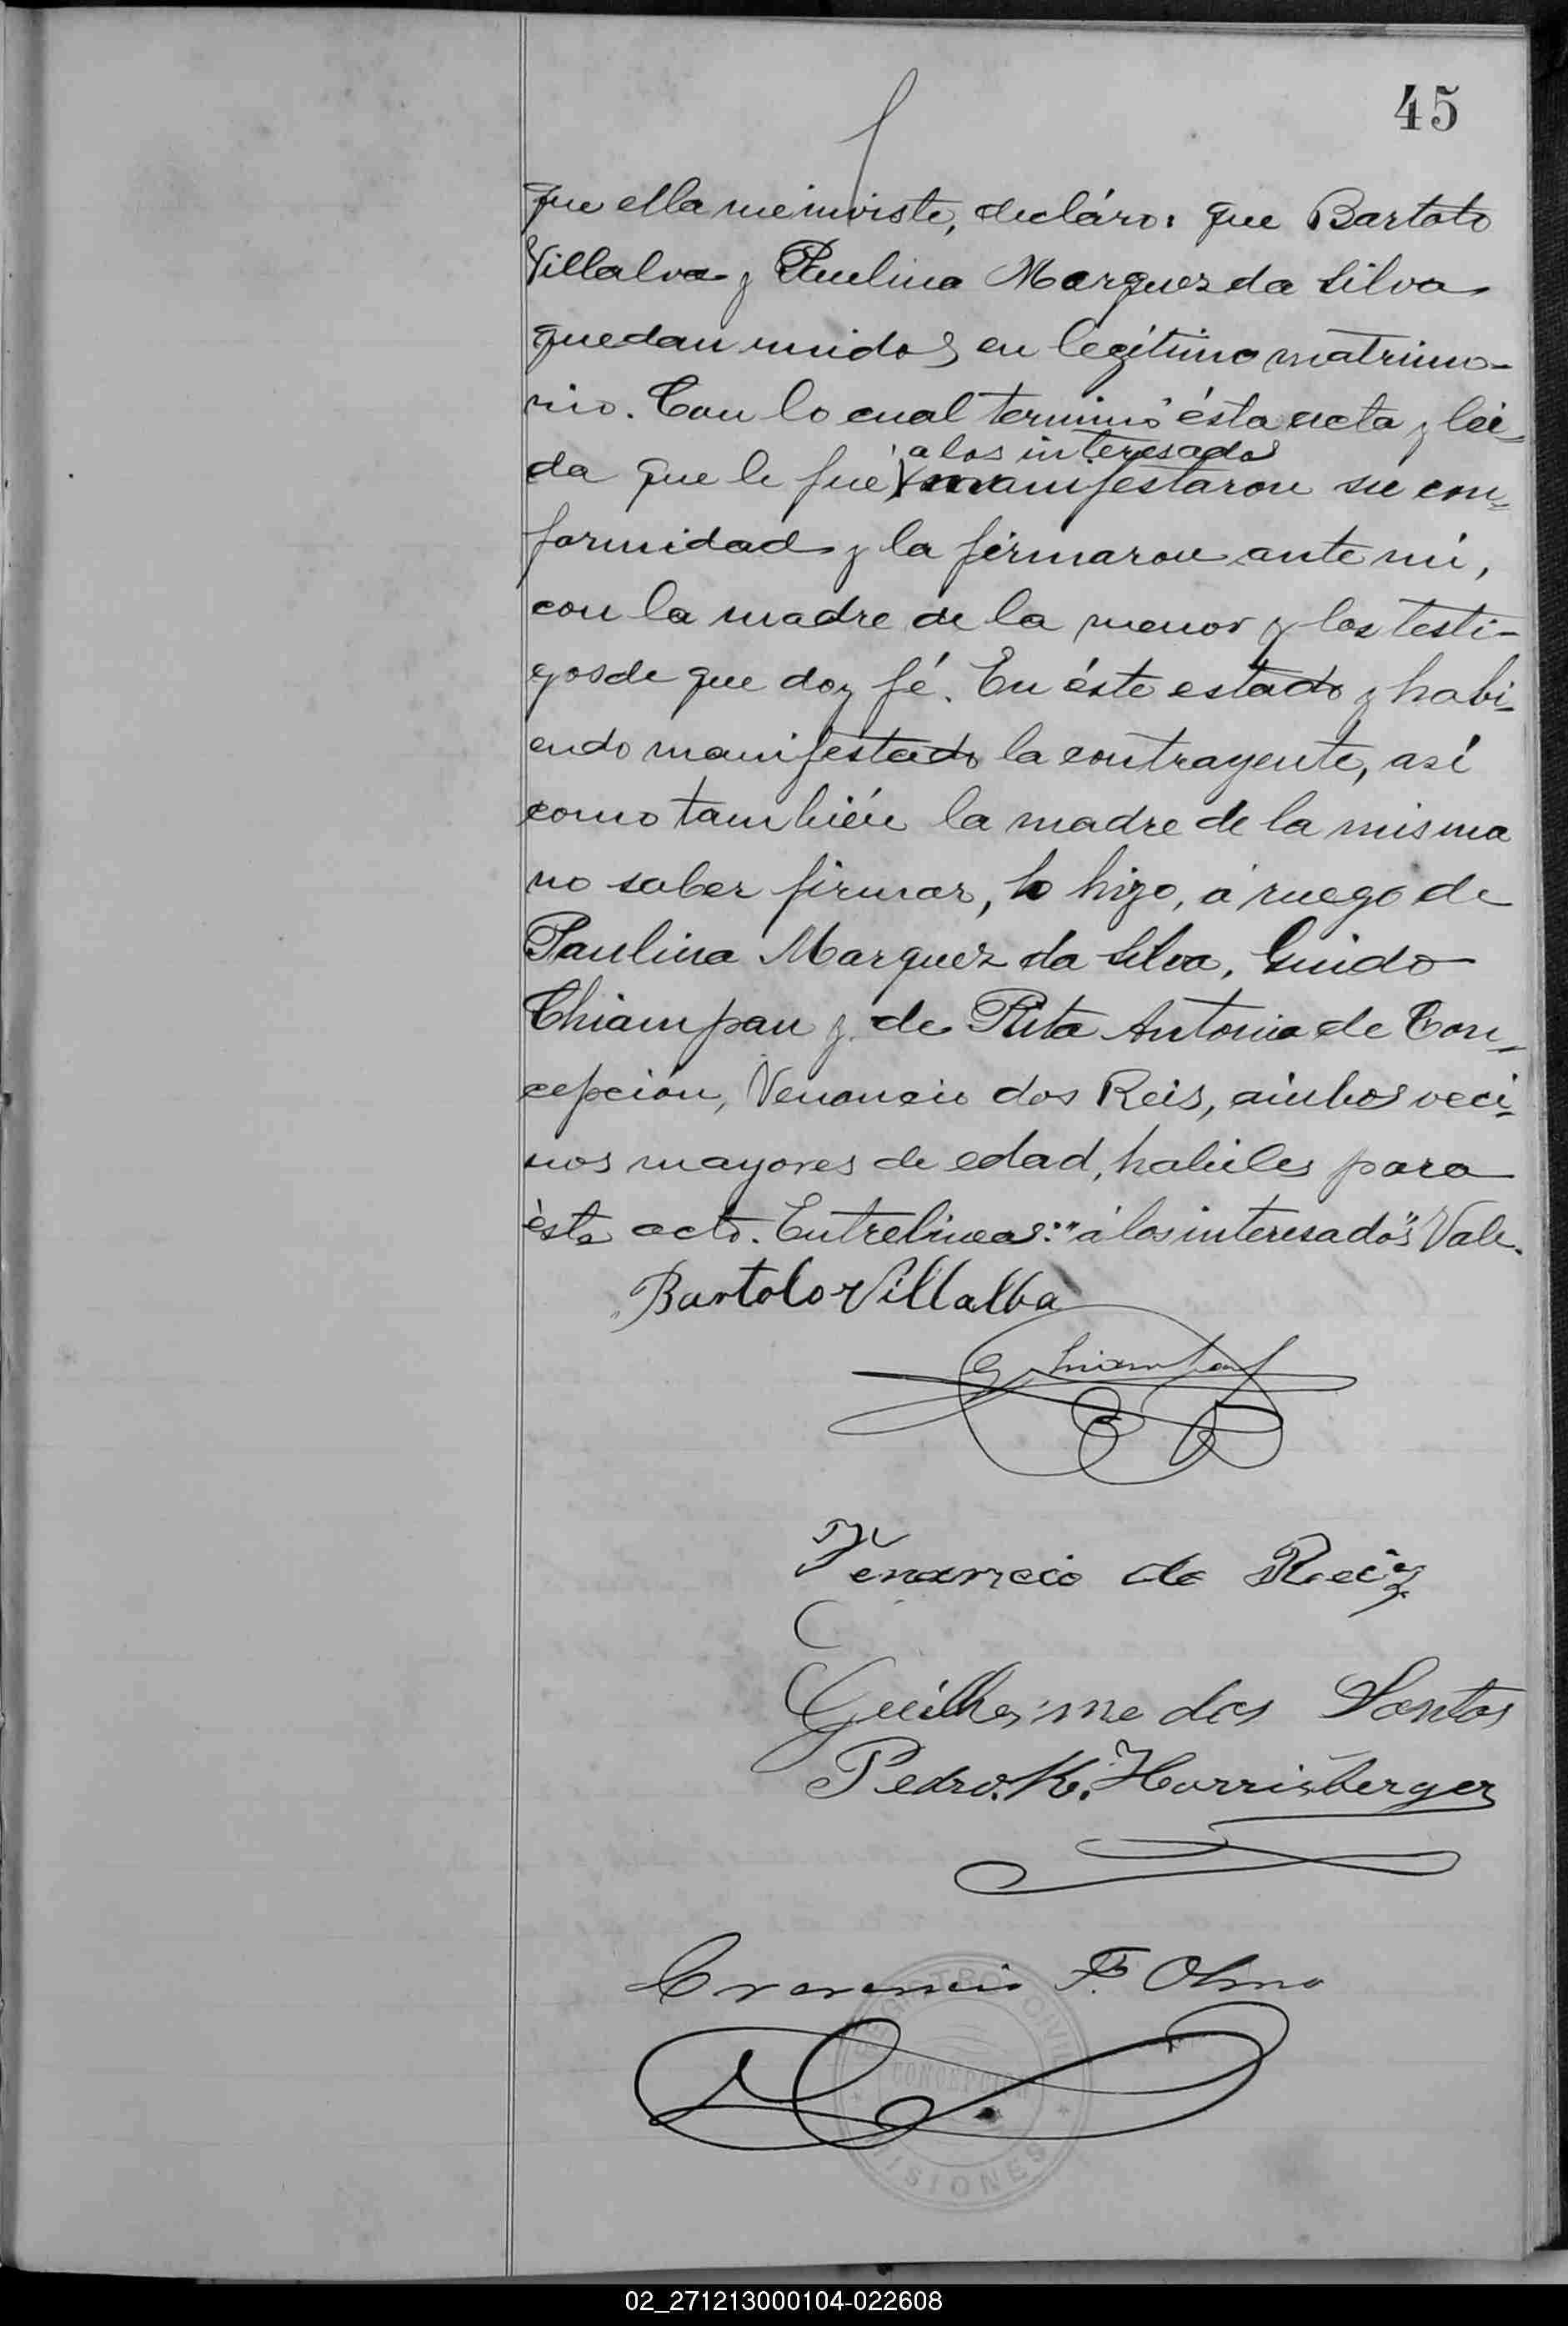 45
que ella me inviste, decláro: que Bartolo
Villalva y Paulina Marquez da Silva
quedan unidos en legítimo matrimo-
nio. Con lo cual terminó ésta acta y leí-
a los interesados
da que le fué manifestaron su con-
formidad y la firmaron ante mi,
con la madre de la menor y los testi-
gos de que doy fé. En éste estado y habi-
endo manifestado la contrayente, así
como también la madre de la misma
no saber firmar, lo hizo, á ruego de
Paulina Marquez da Silva, Guido
Chiampan y de Rita Antonia de Con-
cepción, Venancio dos Reis, ambos veci-
nos mayores de edad, habiles para
éste acto. Entrelineas: "á los interesados" Vale.
Bartolo Villalba
Venancio de Reis
Guilherme dos Santos
Pedro. K. Harrisberger
F. Olmo
REGISTRO CIVIL
CONCEPCION
MISIONES
02_271213000104-022608